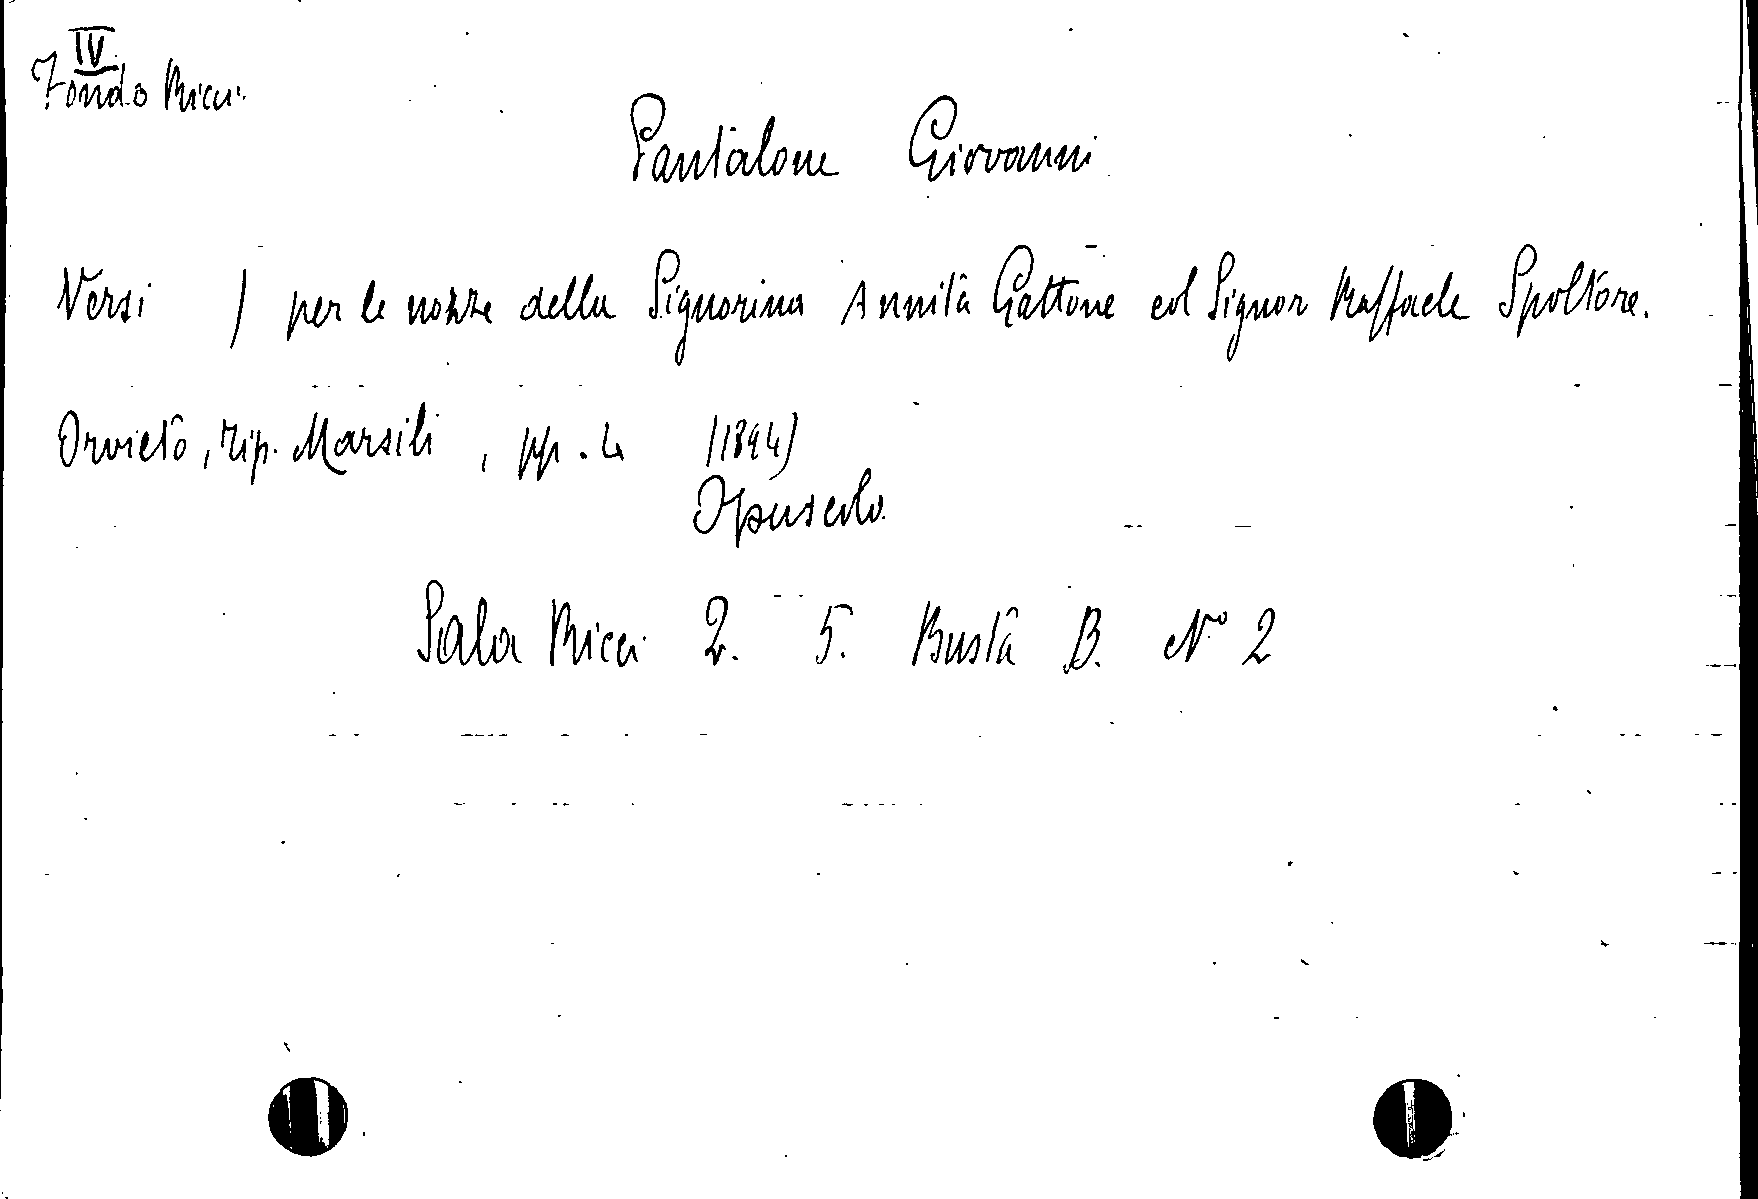 IV
Fondo Ricci
Pantalone Giovanni
Versi / per le nozze della Signorina Annita Gattone col Signor Raffaele Spoltore.
Orvieto, tip. Marsili, pp. 4 (1894)
Opuscolo
Sala Ricci 2. 5. Busta B. N° 2